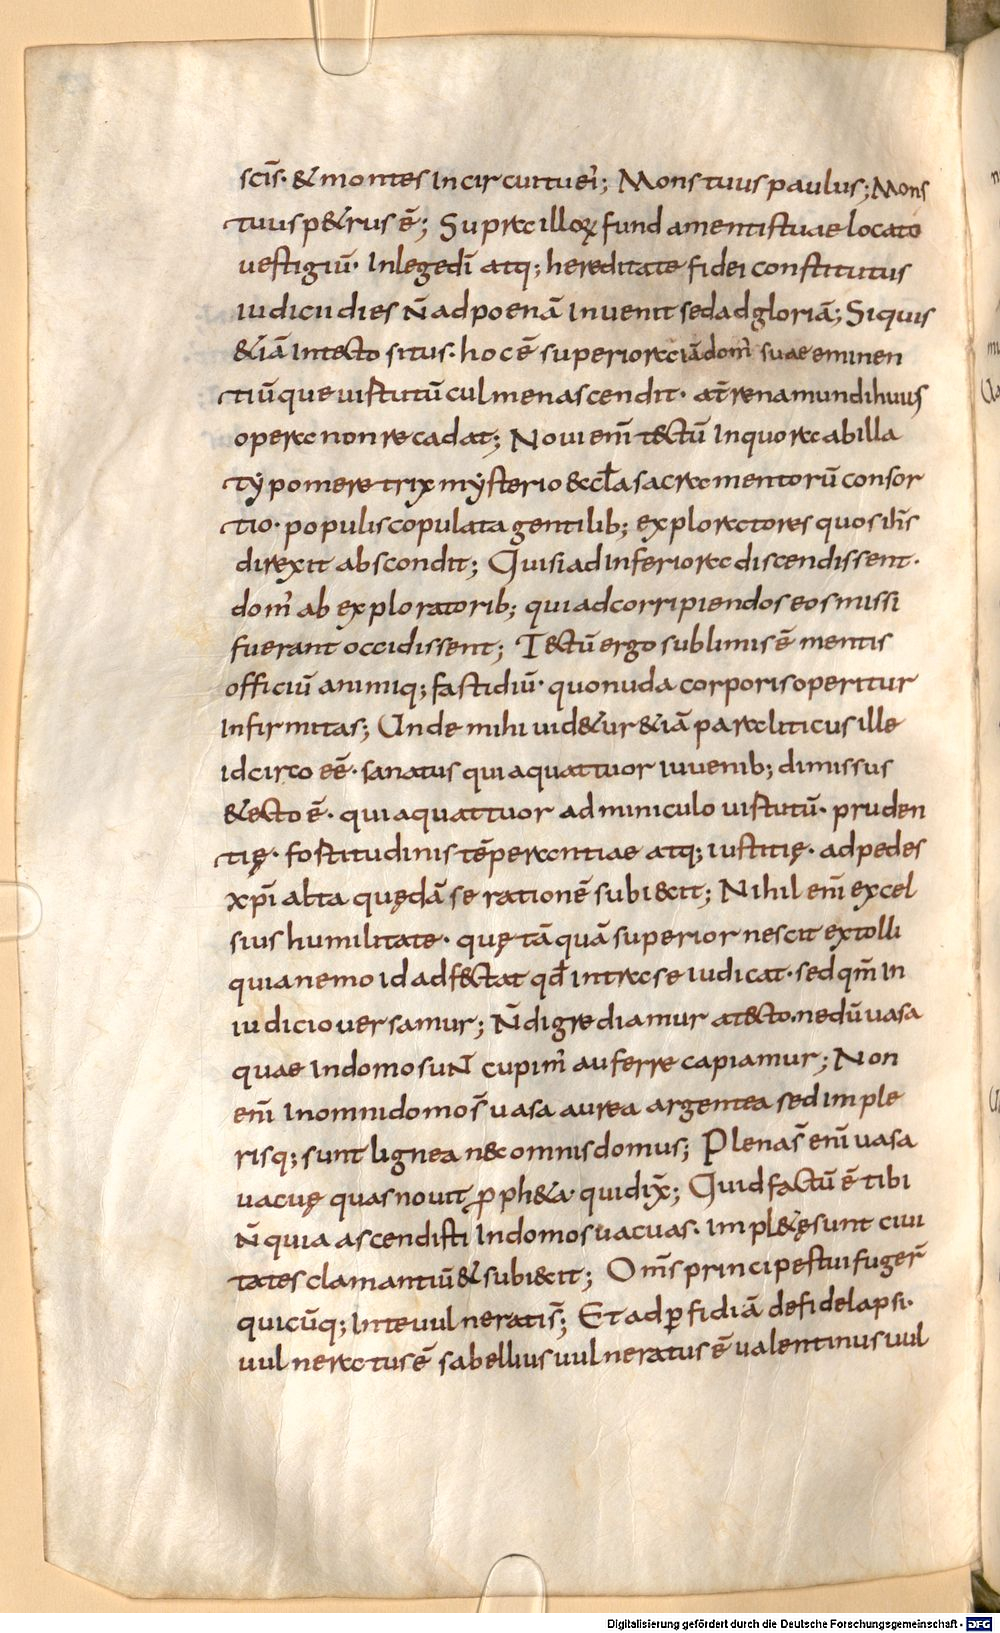 scīs· & montes In circuitu ei᾽; Mons tuus paulus; Mons
tuus p&rus ē; Supra illoꝝ fundamentis tuae locato
uestigiū· In lege dn̄i atq; hereditate fidei constitutus
iudicii dies n̄ ad poenā Inuenit sed ad gloriā; Si quis
&iā In tecto situs· hoc ē superiora iā dom᾽ suae eminen
tiūque uirtutū culmen ascendit· at̄rena mundi huius
opera non recadat; Noui enī tectū In quo raab illa
typo meretrix mysterio æccl̄a sacramentorū consor
tio· populis copulata gentilib; exploratores quos ih̄s
direxit abscondit; Qui si ad Inferiora discendissent·
dom᾽ ab exploratorib; qui ad corripiendos eos missi
fuerant occidissent; Tectū ergo sublimis ē mentis
officiū animiq; fastidiū· quo nuda corporis operitur
Infirmitas; Unde mihi uid&ur &iā paraliticus ille
idcirco eē· sanatus quia quattuor iuuenib; dimissus
& ecto ē· quia quattuor adminiculo uirtutū· pruden
tię· fortitudinis tēperantiae atq; iustitię· ad pedes
xp̄i alta quędā se rationē subi&cit; Nihil enī excel
sius humilitate· quę tāquā superior nescit extolli
quia nemo id adfectat qd̄ intra se iudicat· sed qm̄ In
iudicio uersamur; N̄ digrediamur a tecto· ne dū uasa
quae In domo sunt cupim᾽ auferre capiamur; Non
enī In omni domo s̄ uasa aurea argentea sed Imple
risq; sunt lignea nec omnis domus; Plena s̄ enī uasa
uacuę quas nouit ꝓph&a· qui dix̄; Quid factū ē tibi
n̄ quia ascendisti In domos uacuas· Impl&ę sunt ciui
tates clamantiū & subi&cit; Om̄s principes tui fuger̄
quicūq; In te uulnerati s̄; Et ad ꝑfidiā de fide lapsi·
uulneratus ē sabellius uulneratus ē ualentinus uul
Digitalisierung gefördert durch die Deutsche Forschungsgemeinschaft - DFG